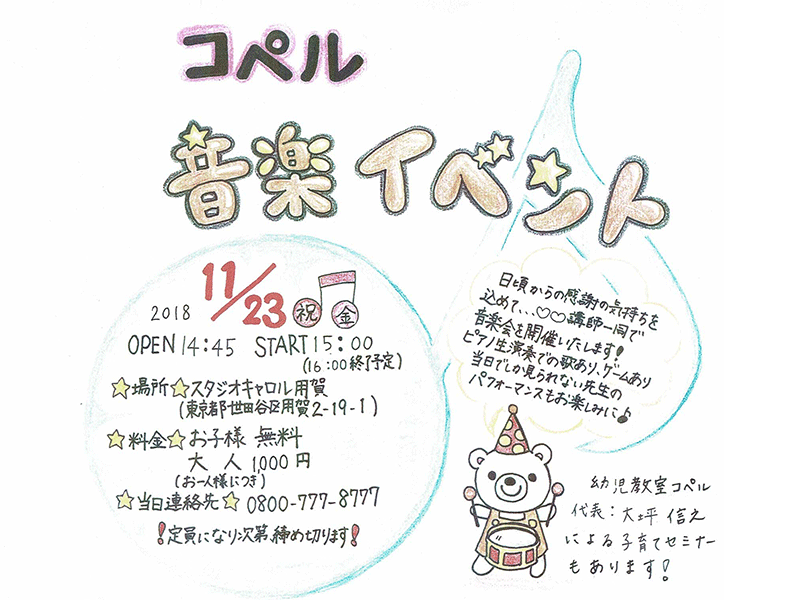 コペル
音楽イベント
2018 11/23 祝 金
OPEN 14:45 START 15:00
(16:00終了予定)
☆場所☆スタジオキャロル用賀
(東京都世田谷区用賀2-19-1)
☆料金☆お子様 無料
大人 1,000円
(お一人様につき)
☆当日連絡先☆ 0800-777-8777
!定員になり次第、締め切ります!
日頃からの感謝の気持ちを
込めて、、、♡♡講師一同で
音楽会を開催いたします!
ピアノ生演奏での歌あり、ゲームあり
当日でしか見られない先生の
パフォーマンスもお楽しみに♪
幼児教室コペル
代表:大坪 信之
による子育てセミナー
もあります!